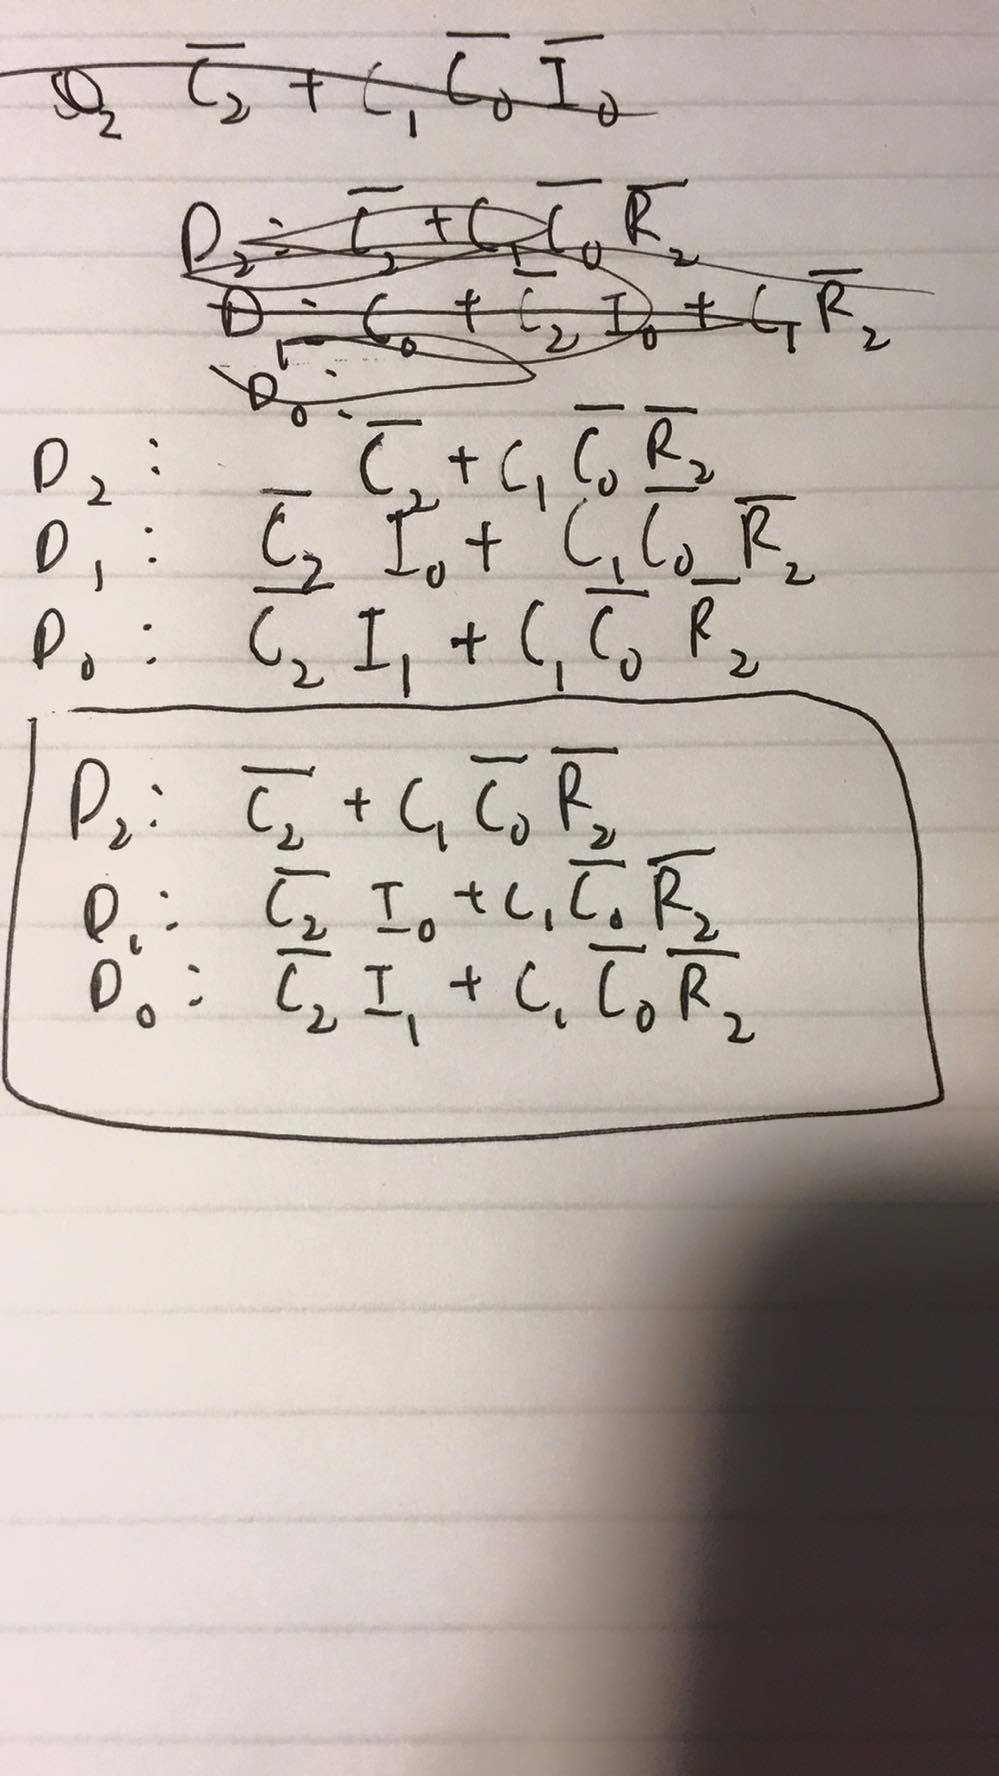 D₂ C̅₂ + C₁ C̅₀ I̅₀
D₂ : C̅₂ + C₁ C̅₀ R̅₂
D₁ : C₀ + C̅₂ I₀ + C₁ R̅₂
D₀ :
D₂ : C̅₂ + C₁ C̅₀ R̅₂
D₁ : C̅₂ I₀ + C₁ C̅₀ R̅₂
D₀ : C̅₂ I₁ + C₁ C̅₀ R̅₂
D₂ : C̅₂ + C₁ C̅₀ R̅₂
D₁ : C̅₂ I₀ + C₁ C̅₀ R̅₂
D₀ : C̅₂ I₁ + C₁ C̅₀ R̅₂